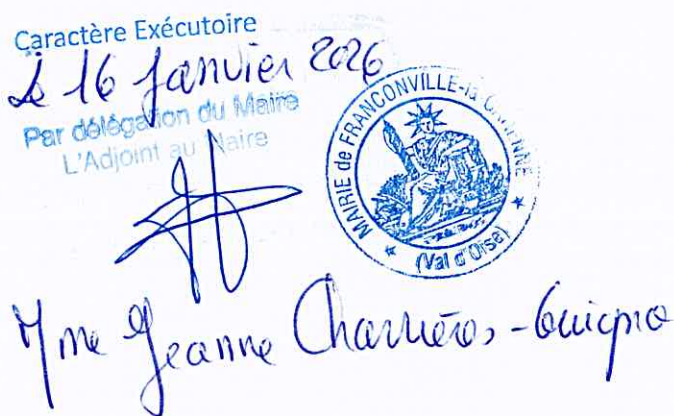 Caractère Exécutoire
Le 16 Janvier 2026
Par délégation du Maire
L'Adjoint au Maire
MAIRIE de FRANCONVILLE-la GARENNE
(Val d'Oise)
Mme Jeanne Charrières-Guigno